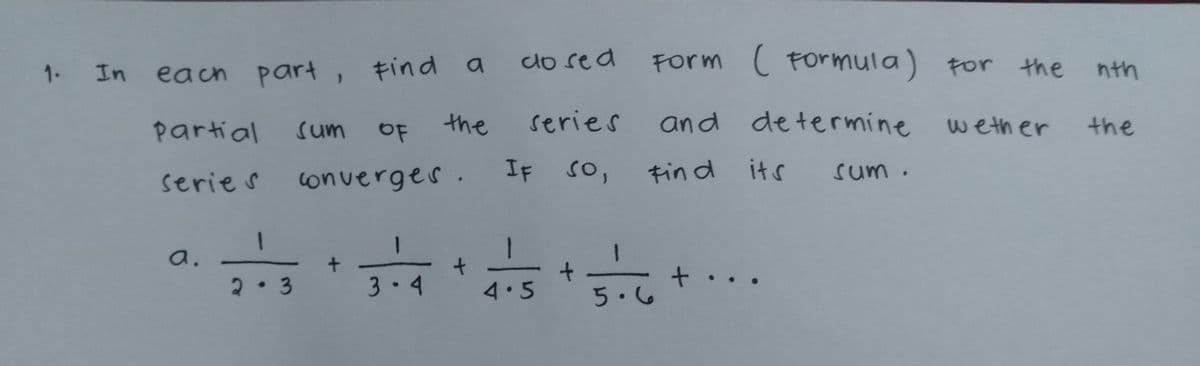 1. In each part, find a closed Form (formula) for the nth
partial sum of the series and determine wether the
series converges. If so, find its sum.
a. 1/(2·3) + 1/(3·4) + 1/(4·5) + 1/(5·6) + ...